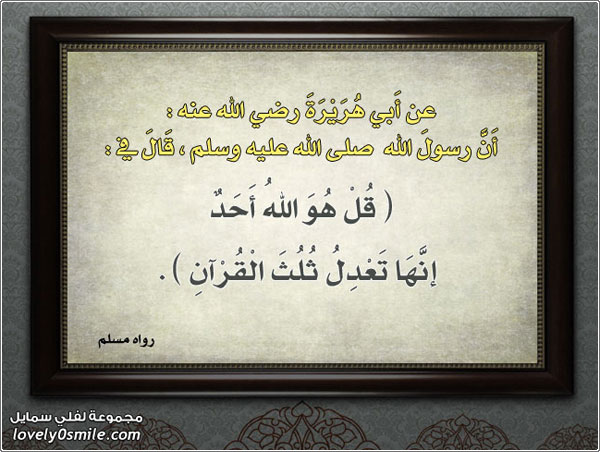 عن أَبي هُرَيْرَةَ رضي الله عنه :
أَنَّ رسولَ الله صلى الله عليه وسلم ، قَالَ في :
( قُلْ هُوَ اللهُ أَحَدٌ
إنَّهَا تَعْدِلُ ثُلُثَ الْقُرْآنِ ) .
رواه مسلم
مجموعة لفلي سمايل
lovely0smile.com